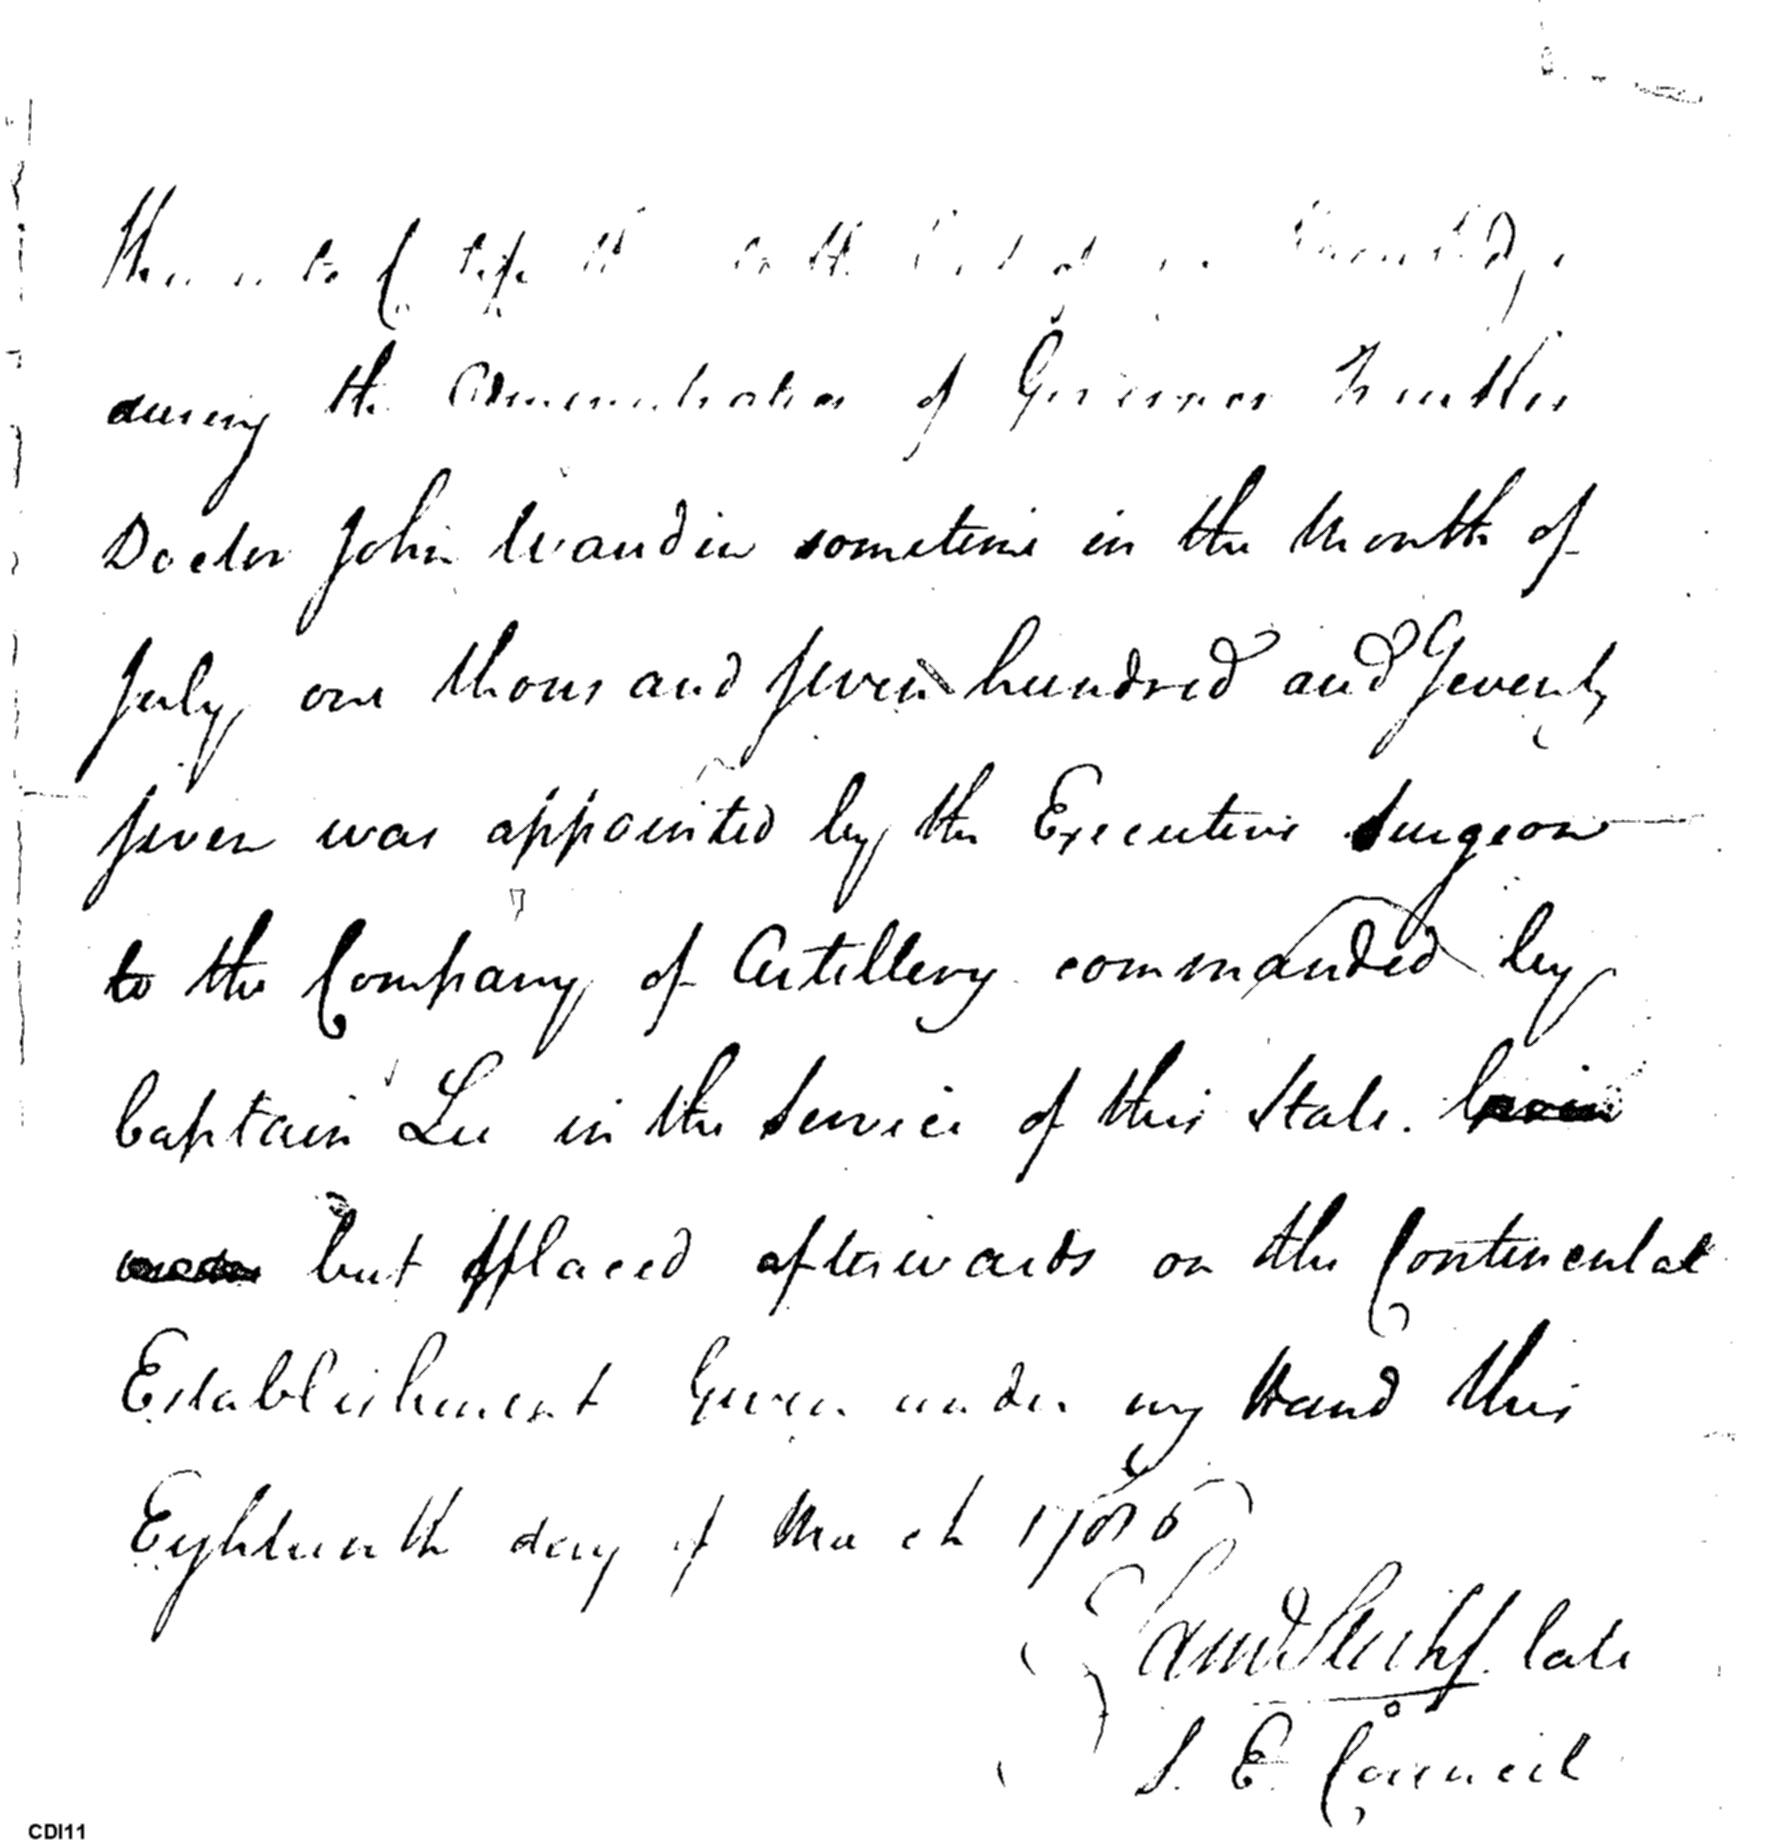 to Certify to the best
during the Administration of Governor
Doctor John Waudin sometime in the Month of
July one thousand seven hundred and Seventy
seven was appointed by the Executive Surgeon
to the Company of Artillery commanded by
Captain Lee in the Service of this State.
but placed afterwards on the Continental
Establishment Given under my Hand this
Eighteenth day of March 1786
Saml Stirk late
S. E. Council
CDI11